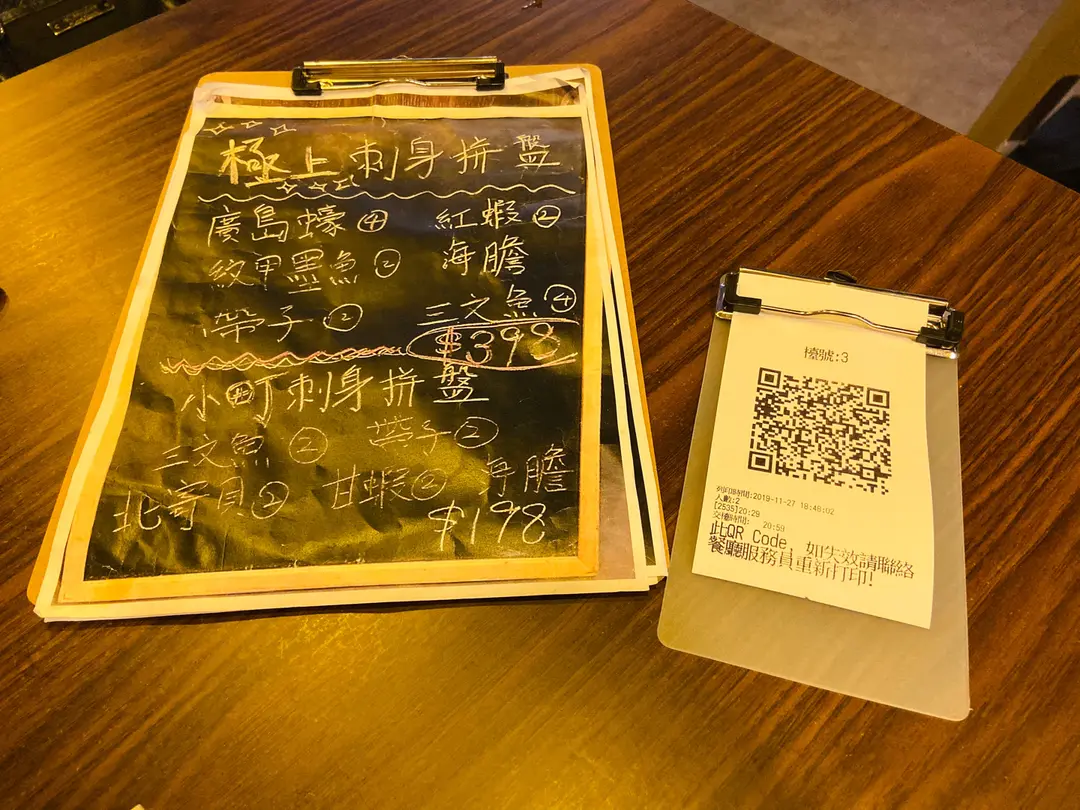 極上刺身拼盤
廣島蠔④ 紅蝦②
紋甲墨魚② 海膽
帶子② 三文魚④
$398
小町刺身拼盤
三文魚② 帶子②
北寄貝② 甘蝦② 海膽
$198
檯號:3
列印時間:2019-11-27 18:48:02
人數:2
[2535]20:29
交檯時間: 20:59
此QR Code 如失效請聯絡
餐廳服務員重新打印!